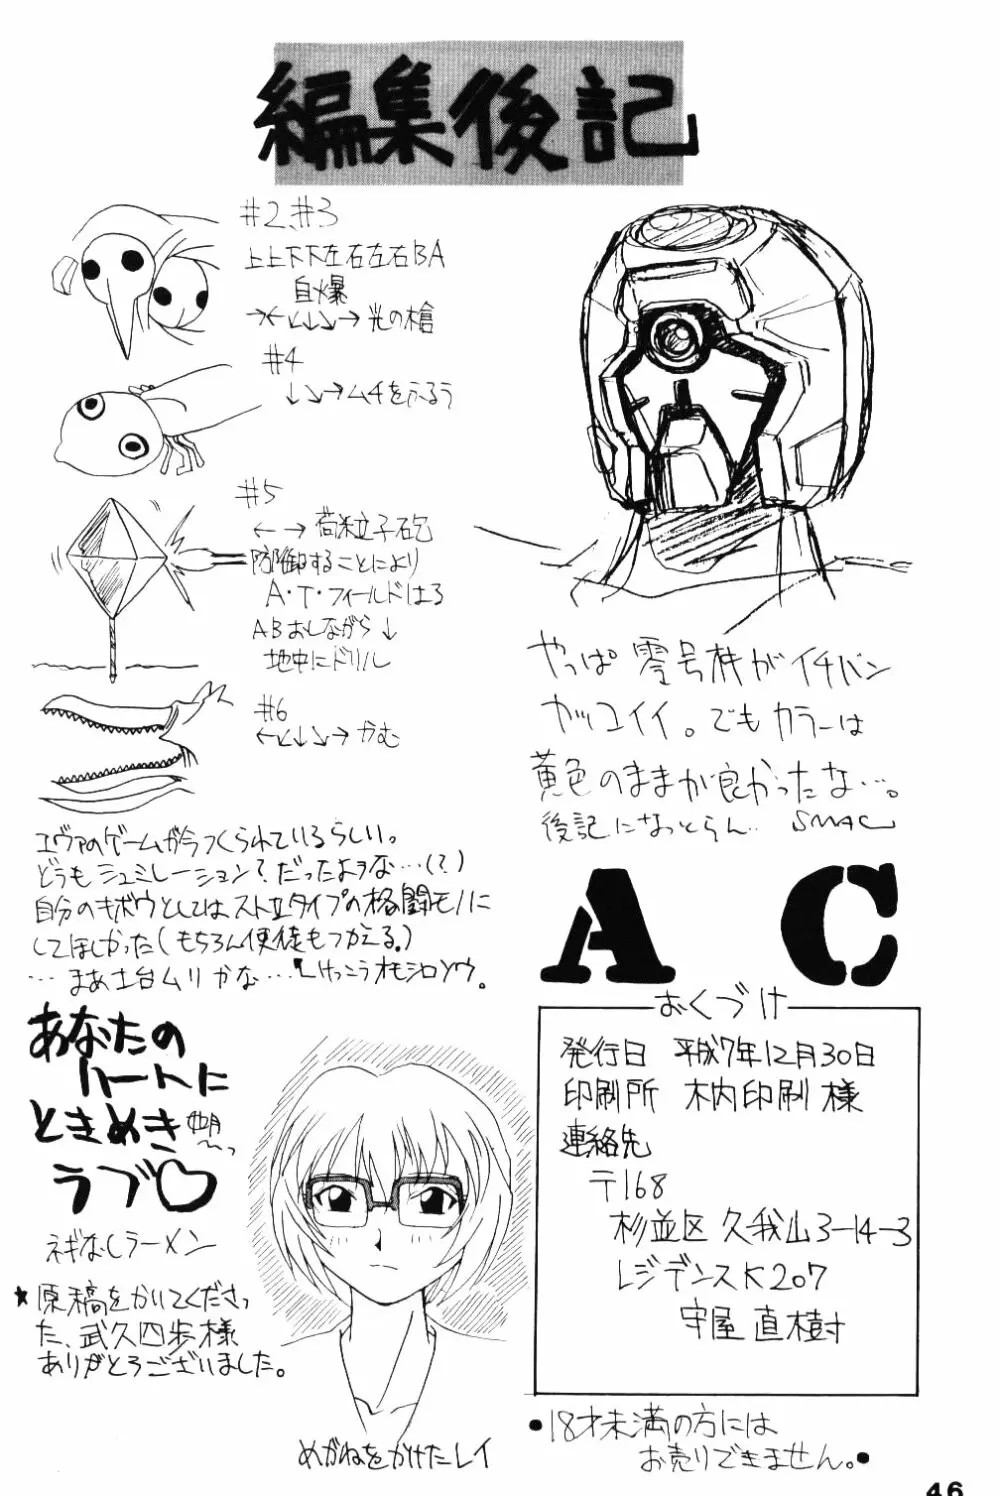 編集後記
#2、#3
上上下下左右左右BA
自爆
→←↙↓↘→光の槍
#4
↓↘→ムチをふるう
#5
← → 荷粒子砲
防御することにより
A・T・フィールドはる
ABおしながら↓
地中にドリル
#6
←↙↓↘→かむ
エヴァのゲームが今つくられているらしい。
どうもシュミレーション?だったような…(?)
自分のキボウとしてはストIIタイプの格闘モノに
してほしかった(もちろん使徒もつかえる。)
…まあ土台ムリかな…。けっこうオモシロソウ。
やっぱ零号機がイチバン
カッコイイ。でもカラーは
黄色のままが良かったな…。
後記になっとらん.. SMAC
AC
あなたの
ハートに
ときめき
ラブ♡
ネギなしラーメン
★原稿をかいてくださっ
た、武久四歩様
ありがとうございました。
めがねをかけたレイ
おくづけ
発行日 平成7年12月30日
印刷所 木内印刷様
連絡先
〒168
杉並区久我山3-14-3
レジデンスK207
守屋直樹
●18才未満の方には
お売りできません。●
46